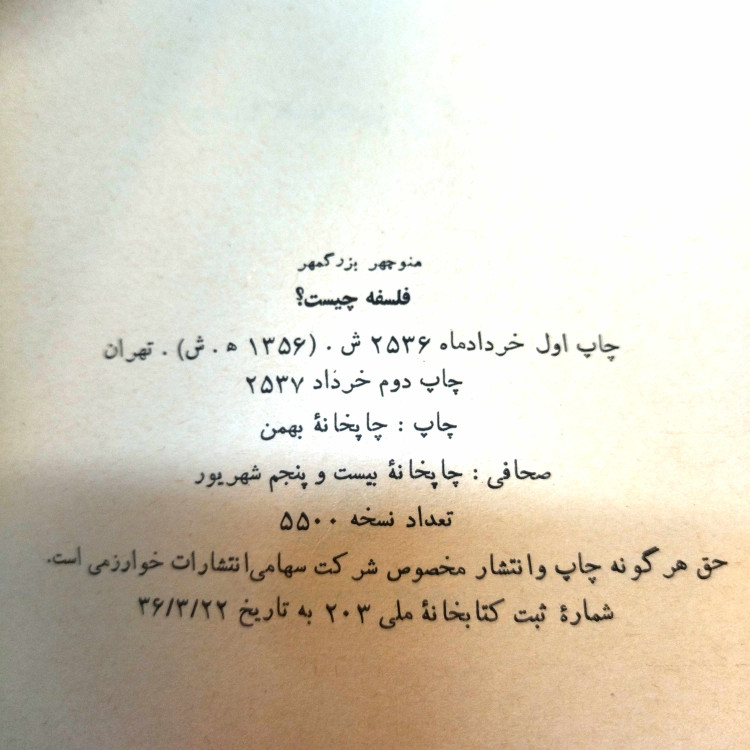 منوچهر بزرگمهر
فلسفه چیست؟
چاپ اول خردادماه ۲۵۳۶ ش . (۱۳۵۶ ه . ش) . تهران
چاپ دوم خرداد ۲۵۳۷
چاپ : چاپخانهٔ بهمن
صحافی : چاپخانهٔ بیست و پنجم شهریور
تعداد نسخه ۵۵۰۰
حق هرگونه چاپ وانتشار مخصوص شرکت سهامی‌انتشارات خوارزمی است.
شمارهٔ ثبت کتابخانهٔ ملی ۲۰۳ به تاریخ ۳۶/۳/۲۲